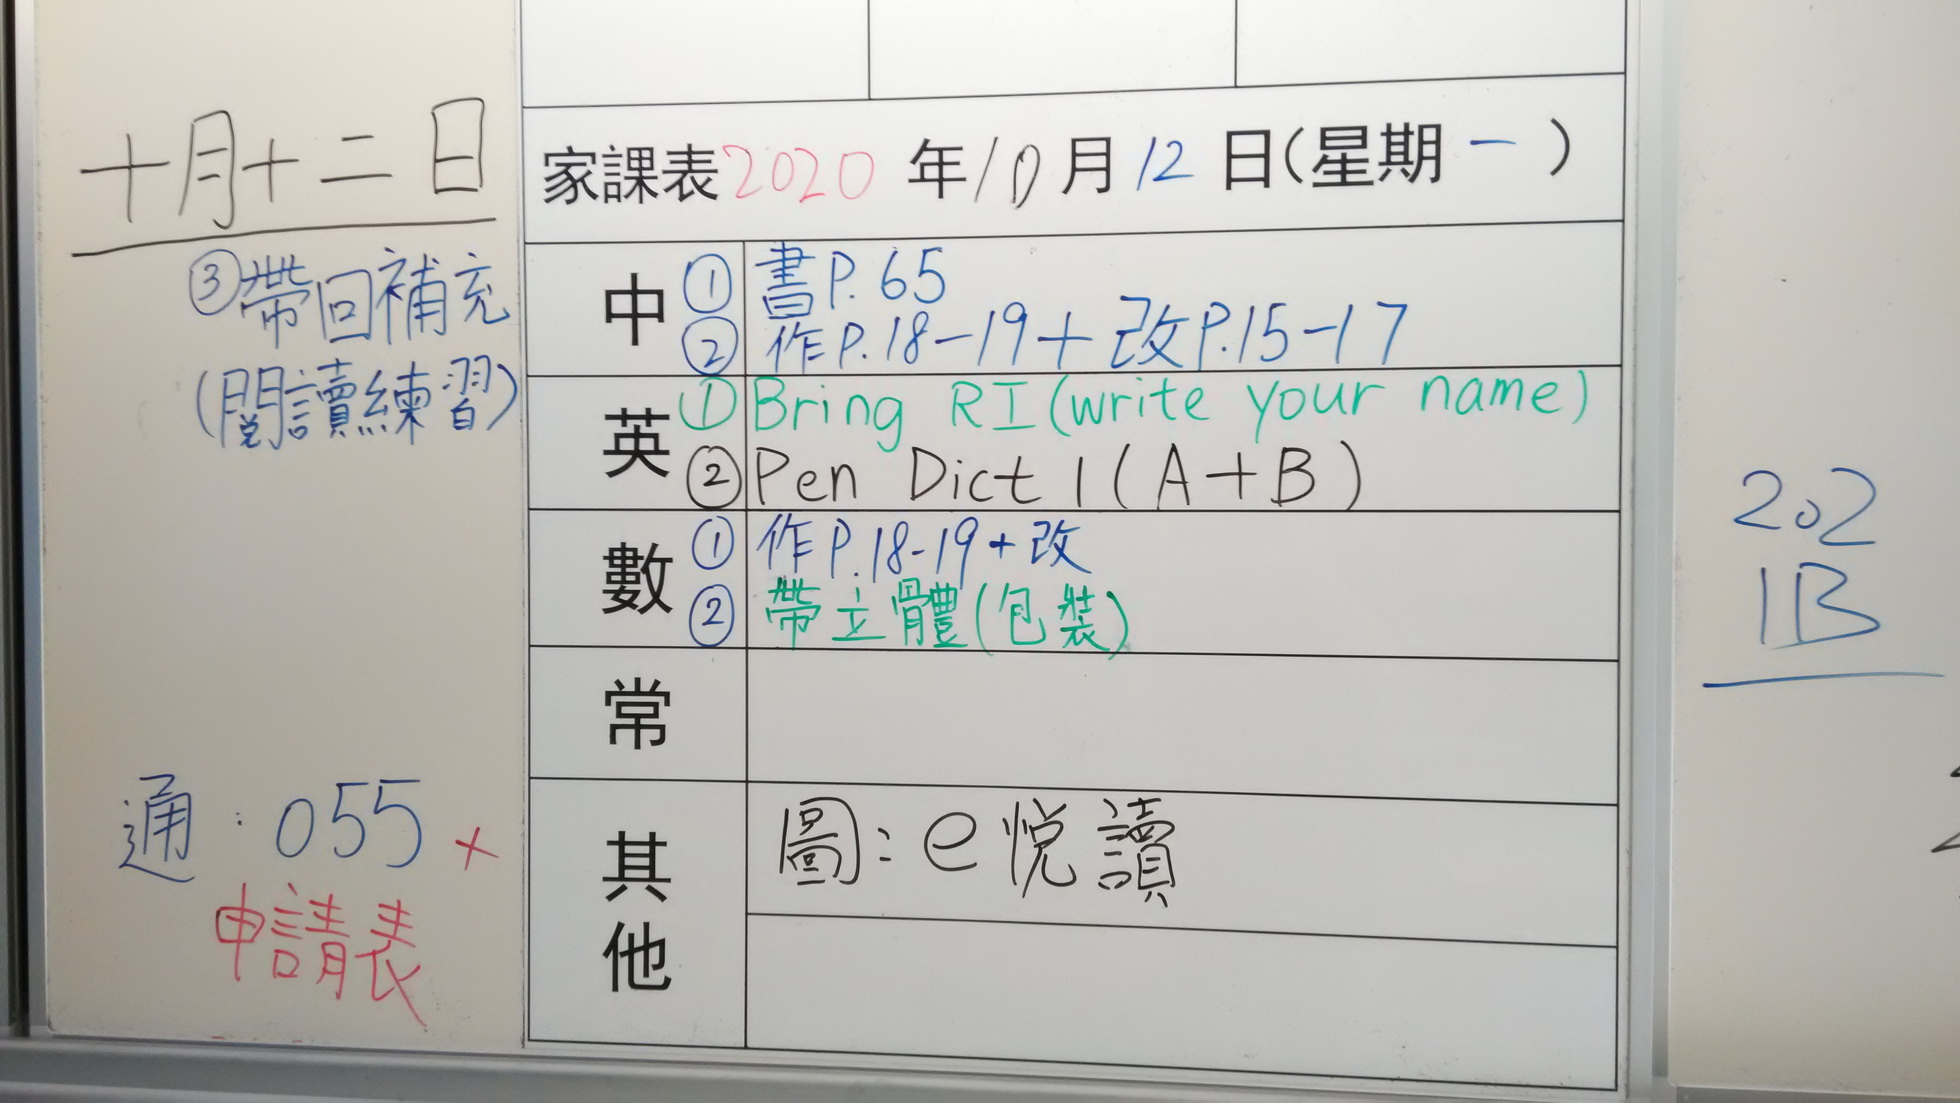 十月十二日
③帶回補充
(閱讀練習)
通：055+
申請表
家課表2020年10月12日(星期一)
中 ① 書P.65
② 作P.18-19+改P.15-17
英 ① Bring RI(write your name)
② Pen Dict 1(A+B)
數 ① 作P.18-19+改
② 帶立體(包裝)
常
其他 圖：e悅讀
202
1B